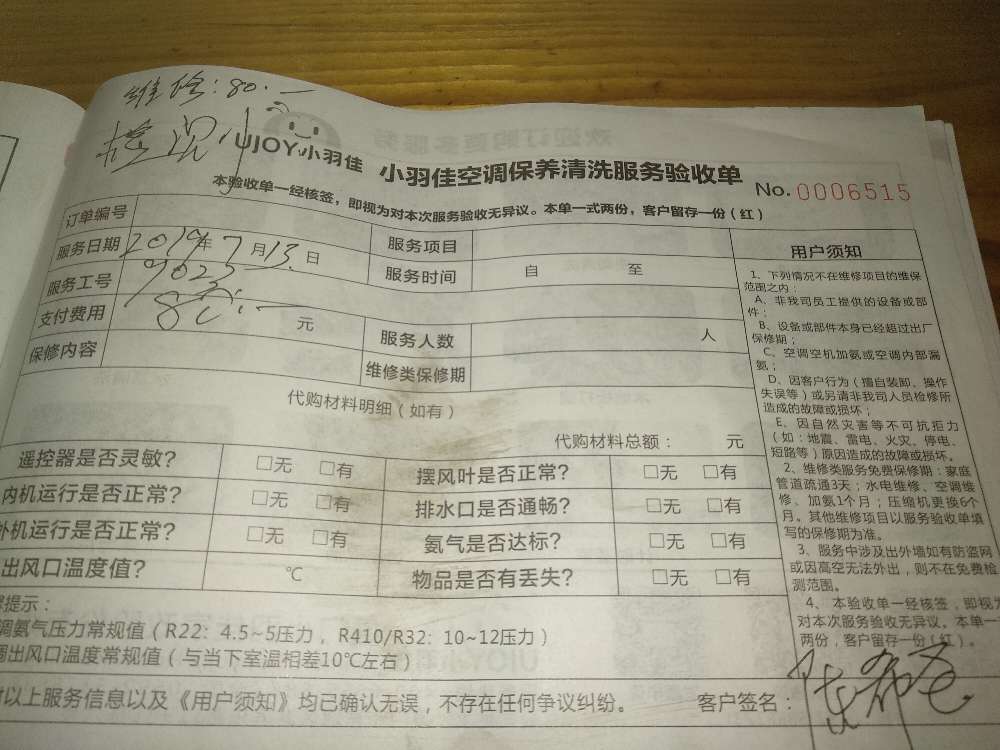 维修：80.一
UJOY小羽佳
小羽佳空调保养清洗服务验收单
No.0006515
本验收单一经核签，即视为对本次服务验收无异议。本单一式两份，客户留存一份（红）
订单编号
服务日期 2019年7月13.日
服务项目
服务工号 9023
服务时间 自 至
支付费用 80.一 元
服务人数 人
保修内容
维修类保修期
代购材料明细（如有）
代购材料总额： 元
遥控器是否灵敏？ □无 □有
摆风叶是否正常？ □无 □有
内机运行是否正常？ □无 □有
排水口是否通畅？ □无 □有
外机运行是否正常？ □无 □有
氨气是否达标？ □无 □有
出风口温度值？ ℃
物品是否有丢失？ □无 □有
提示：
调氨气压力常规值（R22：4.5~5压力，R410/R32：10~12压力）
出风口温度常规值（与当下室温相差10℃左右）
以上服务信息以及《用户须知》均已确认无误，不存在任何争议纠纷。
客户签名：
用户须知
1、下列情况不在维修项目的维保
范围之内：
A、非我司员工提供的设备或部
件；
B、设备或部件本身已经超过出厂
保修期；
C、空调空机加氨或空调内部漏
氨；
D、因客户行为（擅自装卸、操作
失误等）或另请非我司人员检修所
造成的故障或损坏；
E、因自然灾害等不可抗拒力
（如：地震、雷电、火灾、停电、
短路等）原因造成的故障或损坏。
2、维修类服务免费保修期：家庭
管道疏通3天；水电维修、空调维
修、加氨1个月；压缩机更换6个
月。其他维修项目以服务验收单填
写的保修期为准。
3、服务中涉及出外墙如有防盗网
或因高空无法外出，则不在免费检
测范围。
4、本验收单一经核签，即视为
对本次服务验收无异议。本单一
两份，客户留存一份（红）。